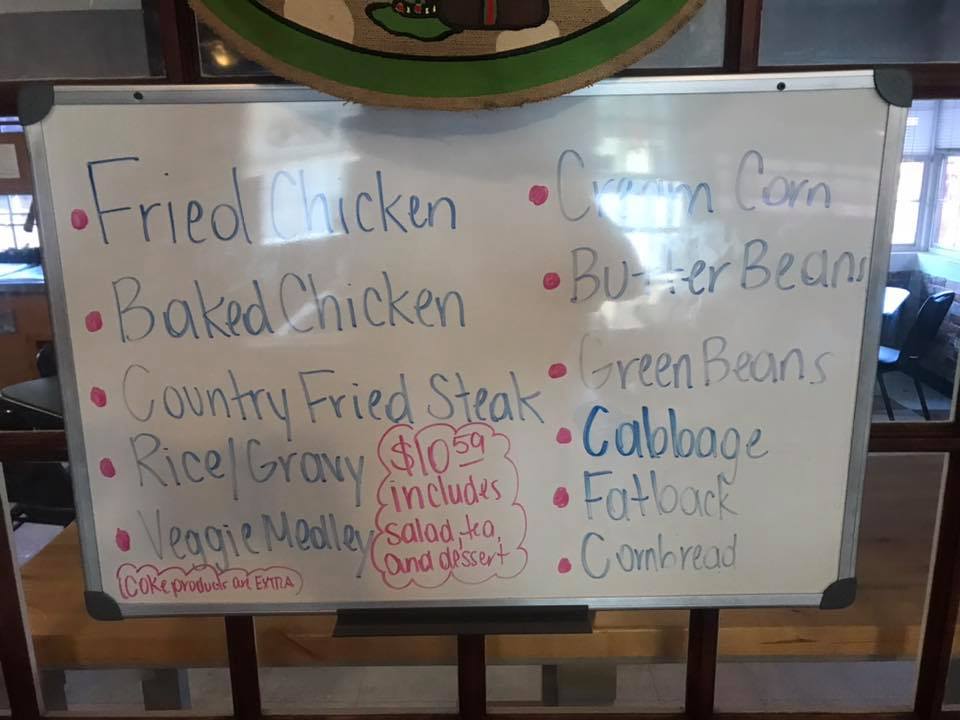 Fried Chicken
Baked Chicken
Country Fried Steak
Rice/Gravy
Veggie Medley
Coke products are EXTRA
$10.59
includes
salad, tea,
and dessert
Cream Corn
Butter Beans
Green Beans
Cabbage
Fatback
Cornbread